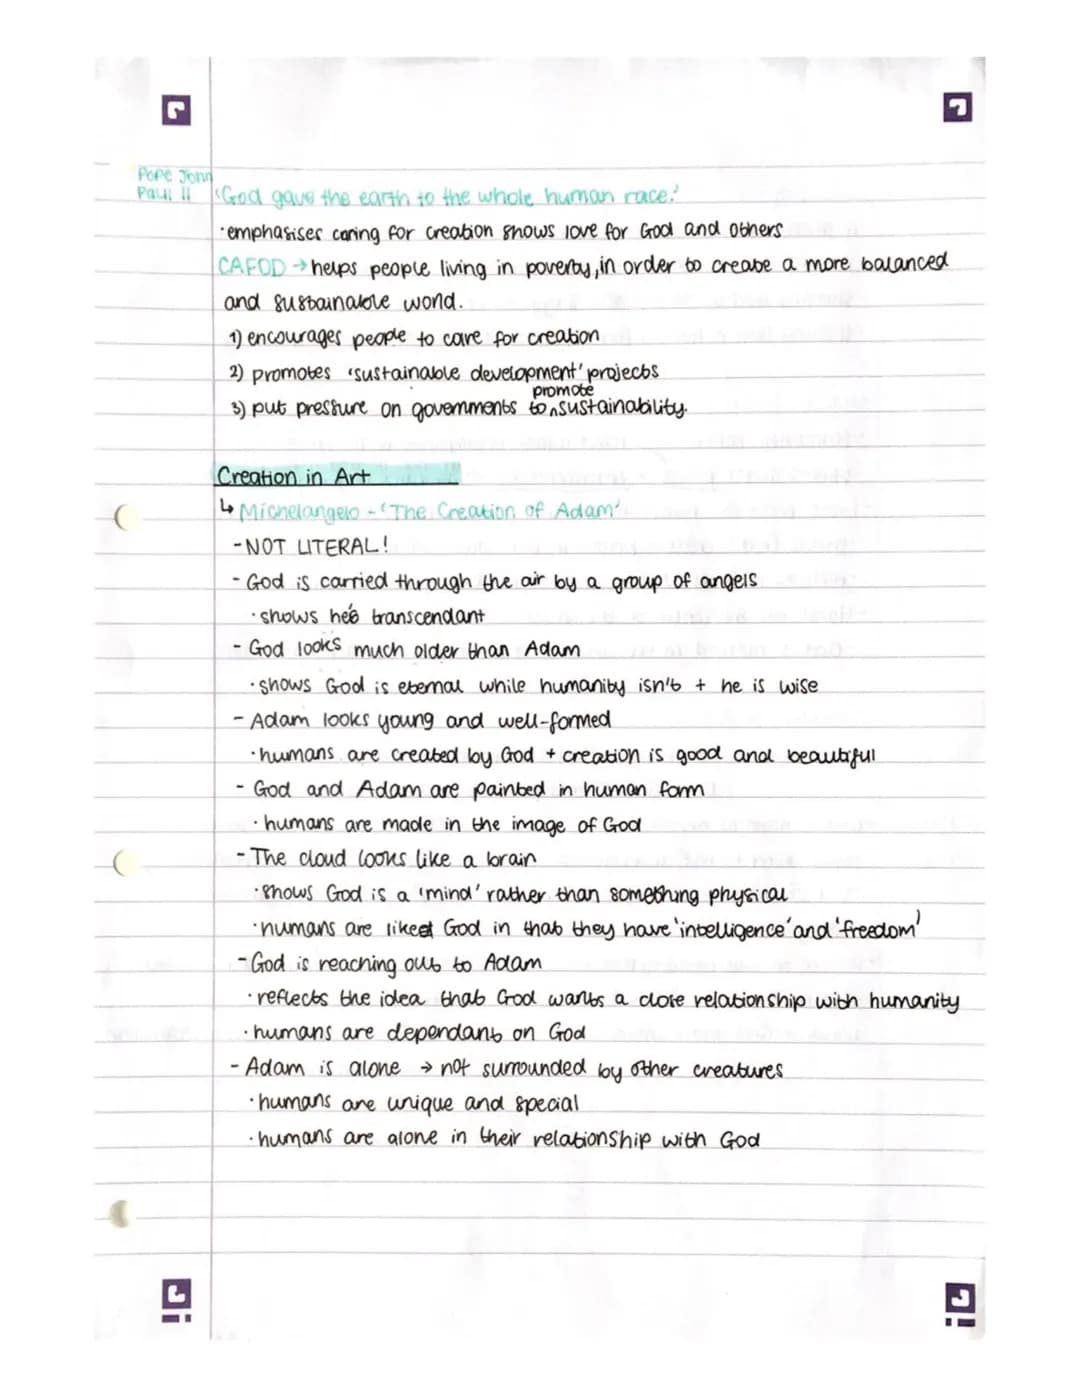 Pope John
Paul II 'God gave the earth to the whole human race.'
·emphasises caring for creation shows love for God and others
CAFOD → helps people living in poverty, in order to create a more balanced
and sustainable world.
1) encourages people to care for creation
2) promotes 'sustainable development' projects
promote
3) put pressure on governments to ^ sustainability.
Creation in Art
↳ Michelangelo - 'The Creation of Adam'
- NOT LITERAL!
- God is carried through the air by a group of angels
·shows he's transcendant
- God looks much older than Adam
·shows God is eternal while humanity isn't + he is wise
- Adam looks young and well-formed
·humans are created by God + creation is good and beautiful
- God and Adam are painted in human form
·humans are made in the image of God
- The cloud looks like a brain
·shows God is a 'mind' rather than something physical
·humans are like God in that they have 'intelligence' and 'freedom'
- God is reaching out to Adam
·reflects the idea that God wants a close relationship with humanity
·humans are dependant on God
- Adam is alone → not surrounded by other creatures
·humans are unique and special
·humans are alone in their relationship with God